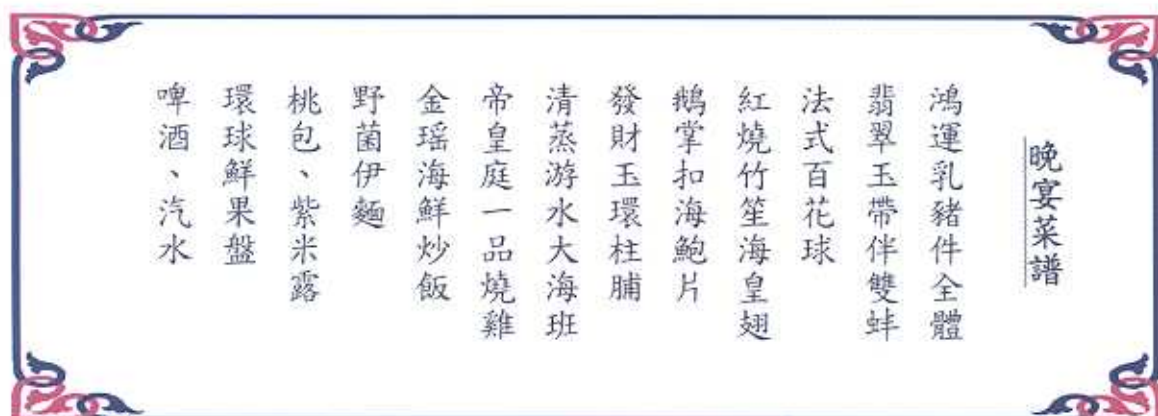 晚宴菜譜
鴻運乳豬件全體
翡翠玉帶伴雙蚌
法式百花球
紅燒竹笙海皇翅
鵝掌扣海鮑片
發財玉環柱脯
清蒸游水大海班
帝皇庭一品燒雞
金瑤海鮮炒飯
野菌伊麵
桃包、紫米露
環球鮮果盤
啤酒、汽水